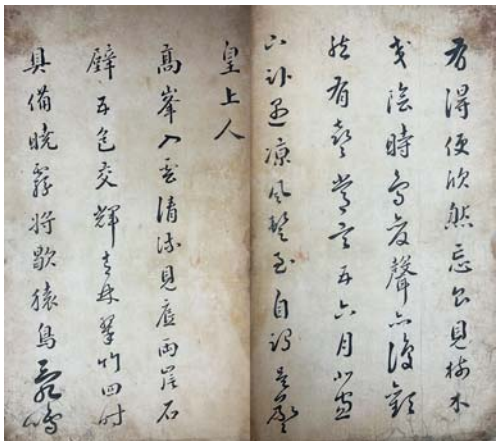 有得便欣然忘食見樹木
交陰時鳥變聲亦復歡
然有喜嘗言五六月北窗
下卧遇涼風暫至自謂是羲
皇上人
高峯入雲清流見底兩岸石
壁五色交輝青林翠竹四時
具備曉霧將歇猿鳥亂鳴